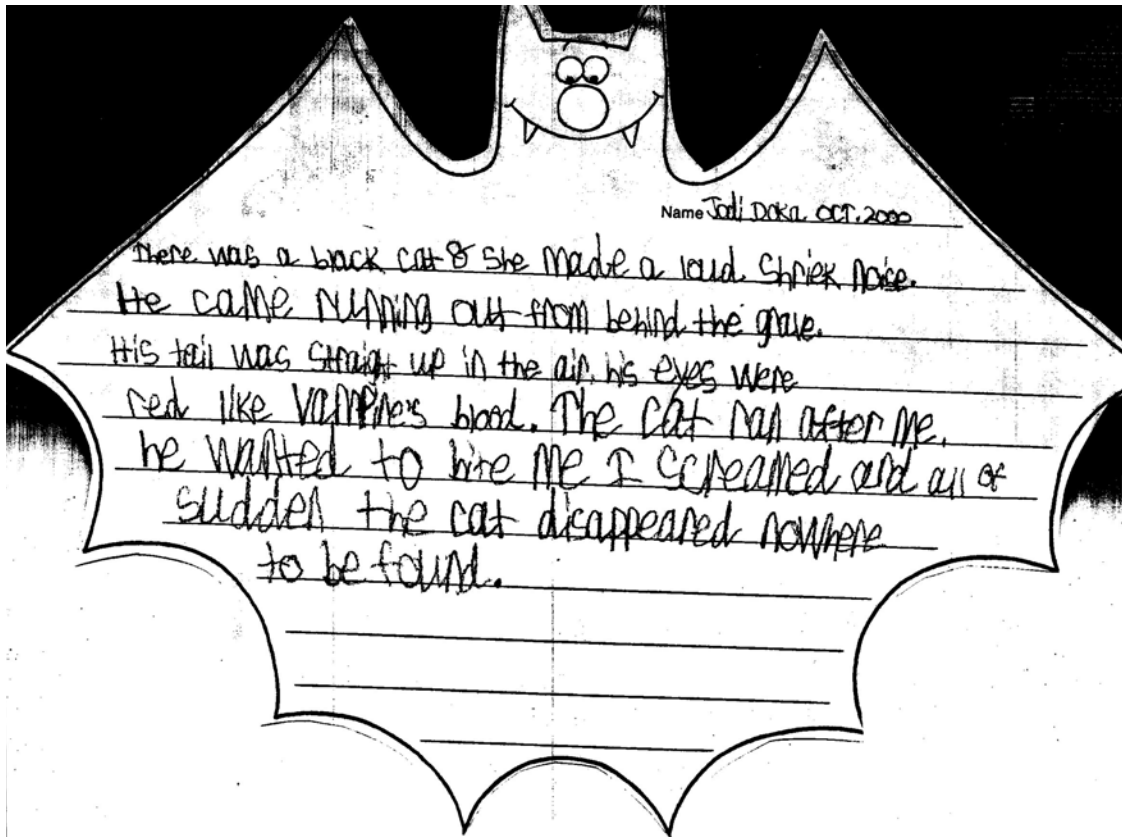 Name Jodi Doka OCT. 2000
There was a black cat & she made a loud shriek noise.
He came running out from behind the grave.
His tail was straight up in the air. his eyes were
red like vampire's blood. The cat ran after me.
he wanted to bite me I screamed and all of
sudden the cat disappeared nowhere
to be found.